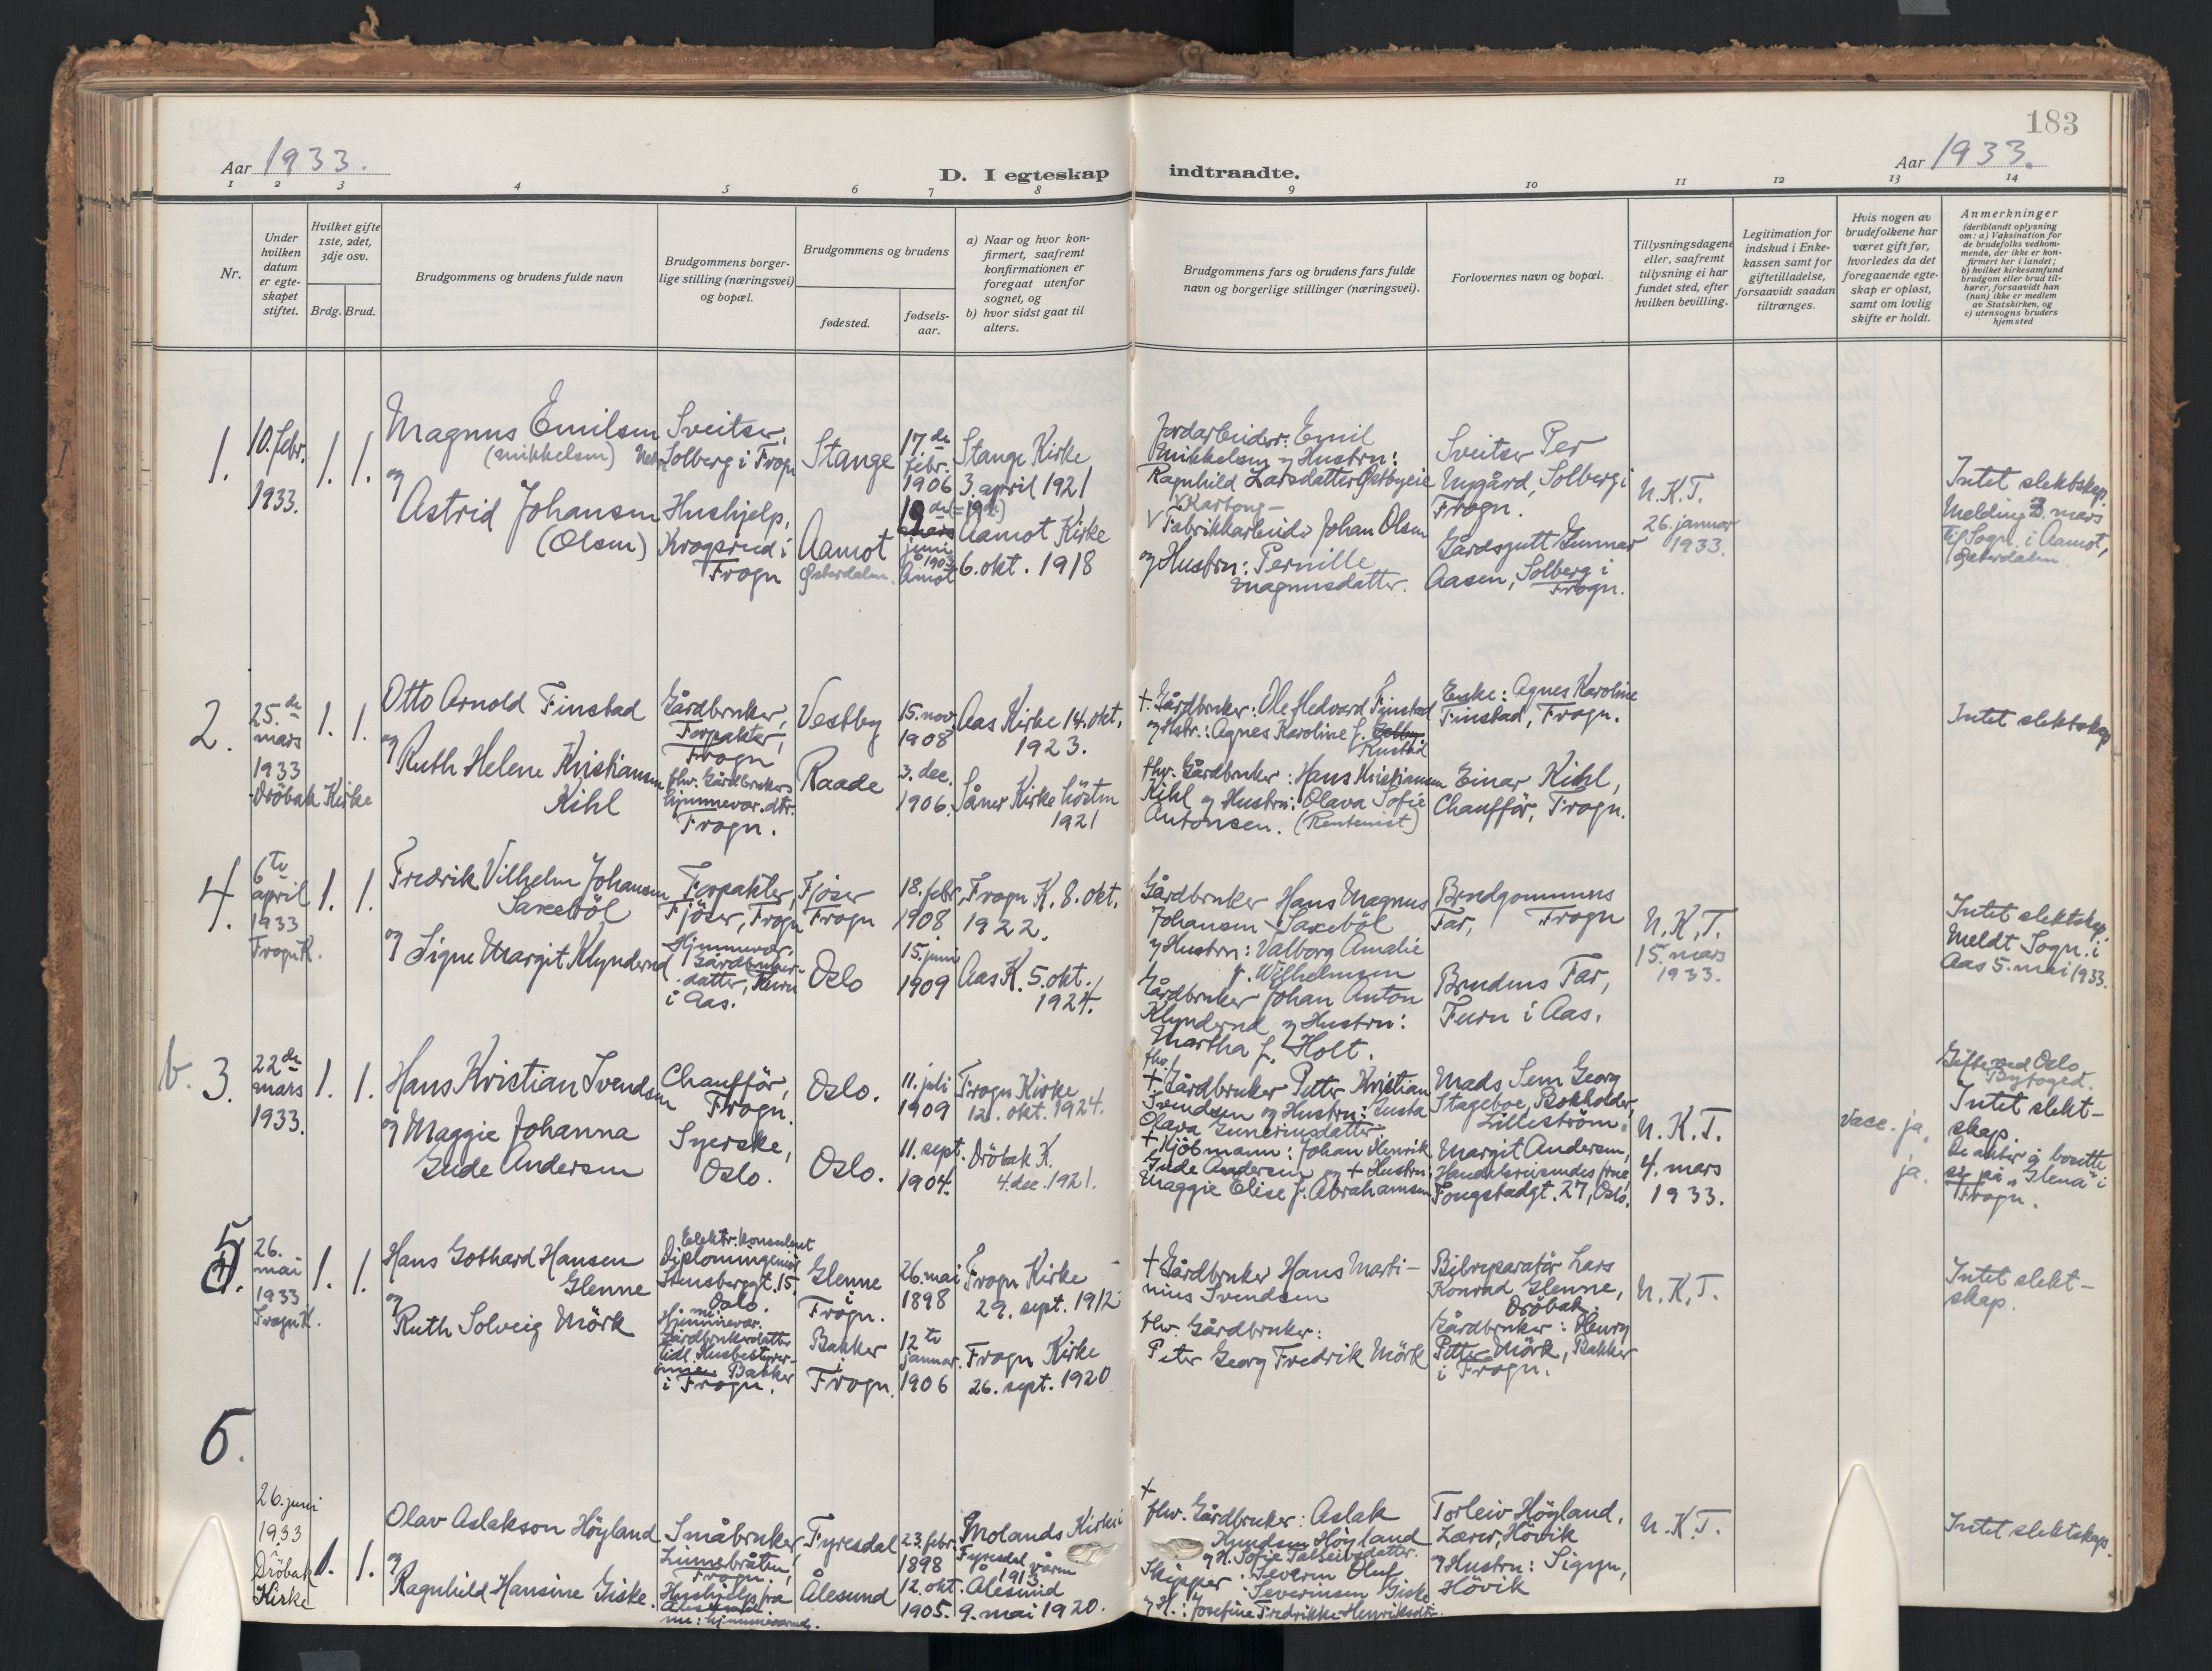 183
Aar 1933.
D. I egteskap indtraadte.
Aar 1933.
1 2 3 4 5 6 7 8 9 10 11 12 13 14
Nr.
Under
hvilken
datum
er egte-
skapet
stiftet.
Hvilket gifte
1ste, 2det,
3dje osv.
Brdg. Brud.
Brudgommens og brudens fulde navn
Brudgommens borger-
lige stilling (næringsvei)
og bopæl.
Brudgommens og brudens
fødested.
fødsels-
aar.
a) Naar og hvor kon-
firmert, saafremt
konfirmationen er
foregaat utenfor
sognet, og
b) hvor sidst gaat til
alters.
Brudgommens fars og brudens fars fulde
navn og borgerlige stillinger (næringsvei).
Forlovernes navn og bopæl.
Tillysningsdagene
eller, saafremt
tillysning ei har
fundet sted, efter
hvilken bevilling.
Legitimation for
indskud i Enke-
kassen samt for
giftetilladelse,
forsaavidt saadan
tiltrænges.
Hvis nogen av
brudefolkene har
været gift før,
hvorledes da det
foregaaende egte-
skap er opløst,
samt om lovlig
skifte er holdt.
Anmerkninger
(deriblandt oplysning
om: a) Vaksination for
de brudefolks vedkom-
mende, der ikke er kon-
firmert her i landet;
b) hvilket kirkesamfund
brudgom eller brud til-
hører, forsaavidt han
(hun) ikke er medlem
av Statskirken, og
c) utensogns bruders
hjemsted
1.
10. febr.
1933.
1. 1.
Magnus Emilsen
(Mikkelsen)
og
Astrid Johansen
(Olsen)
Sveitser,
Solberg i Frogn
Hushjelp,
Krogsrud i
Frogn
Stange
Aamot
Østerdalen.
17de
febr.
1906
19de (=19de)
mars
juni
1903
Amot
Stange Kirke
3. april 1921
Aamot Kirke
6. okt. 1918
Jordarbeider: Emil
Mikkelsen og Hustru:
Ragnhild Larsdatter Østbyeie
Kartong-
Fabrikkarbeider Johan Olsen
og Hustru: Pernille
Magnusdatter.
Sveitser Per
Nygård, Solberg i
Frogn.
Gårdsgutt Gunnar
Aasen, Solberg i
Frogn.
N.K.T.
26. januar
1933.
Intet slektskap.
Melding 3. mars
til Sogn. i Aamot,
Østerdalen
2.
25.de
mars
1933
Dröbak Kirke
1. 1.
Otto Arnold Finstad
og
Ruth Helene Kristiansen
Kihl
Gårdbruker,
Forpakter,
Frogn
fhv. Gårdbrukers
hjemmevær. dtr.
Frogn.
Vestby
Raade
15. nov.
1908
3. dec.
1906.
Aas Kirke 14. okt.
1923.
Såner Kirke hösten
1921
+ Gårdbruker: Ole Hedvard Finstad
og Hstr.: Agnes Karoline f.
Rustad
fhv. Gårdbruker: Hans Kristiansen
Kihl og Hustru: Olava Sofie
Antonsen. (Rentenist)
Enke: Agnes Karoline
Finstad, Frogn.
Einar Kihl,
Chaufför, Frogn.
Intet slektskap
4.
6te
april
1933
Frogn K.
1. 1.
Fredrik Vilhelm Johansen
Saxeböl
og Signe Margit Klynderud
Forpakter,
Fjöser, Frogn
Hjemmevær.
Gårdbruker-
datter, Furu
i Aas.
Fjöser
Frogn
Oslo
18. febr.
1908
15. juni
1909
Frogn K. 8. okt.
1922.
Aas K. 5. okt.
1924.
Gårdbruker Hans Magnus
Johansen Saxeböl
og Hustru: Valborg Amalie
f. Wilhelmsen
Gårdbruker Johan Anton
Klynderud og Hustru:
Martha f. Holt.
Brudgommens
Far, Frogn
Brudens Far,
Furu i Aas.
N.K.T.
15. mars
1933.
Intet slektskap
Meldt Sogn. i
Aas 5. mai 1933.
b. 3.
22de
mars
1933.
1. 1.
Hans Kristian Svendsen
og Maggie Johanna
Gude Andersen
Chaufför,
Frogn.
Syerske,
Oslo.
Oslo.
Oslo.
11. juli
1909
11. sept.
1904.
Frogn Kirke
12. okt. 1924.
Dröbak K.
4. dec. 1921.
fhv.
+ Gårdbruker Petter Kristian
Svendsen og Hustru: Gusta
Olava Gunerinsdatter.
+ Kjöbmann: Johan Henrik
Gude Andersen og + Hustru:
Maggie Elise f. Abrahamsen
Mads Sem Georg
Stageboe, Bokholder,
Lilleström.
Margit Andersen,
Handelsreisendes frue,
Fougstadgt. 27, Oslo.
N.K.T.
4. mars
1933.
Vacc. ja.
ja.
Gifte ved Oslo
Byfoged.
Intet slekt-
skap.
De akter å bosette
sig på "Glena" i
Frogn.
5.
26.
mai
1933
Frogn K.
1. 1.
Hans Gothard Hansen
Glenne
og
Ruth Solveig Mörk
Elektr. konsulent
Diplomingeniör
Stensberggt. 15,
Oslo.
Hjemmevær.
Gårdbrukerdatter
tidl. Husbestyrer-
inne Bakker
i Frogn.
Glenne
i
Frogn.
Bakker
i
Frogn.
26. mai
1898
12te
januar
1906
Frogn Kirke
29. sept. 1912
Frogn Kirke
26. sept. 1920
+ Gårdbruker Hans Marti-
nius Svendsen
fhv. Gårdbruker:
Peter Georg Fredrik Mörk
Bilreparatör Lars
Konrad Glenne,
Dröbak.
Gårdbruker: Henry
Petter Mörk, Bakker
i Frogn.
N.K.T.
Intet slekt-
skap.
6.
26. juni
1933
Dröbak
Kirke
1. 1.
Olav Aslakson Höyland
og
Ragnhild Hansine Giske.
Småbruker,
Linnebråten,
Frogn.
Hushjelp fra
Ålesund
nu: hjemmeværende.
Fyresdal
Ålesund
23. febr.
1898
12. okt.
1905.
Molands Kirke i
Fyresdal våren
1913
Ålesund
9. mai 1920.
+
fhv. Gårdbruker: Aslak
Knudsen Höyland
og H. Sofie Talleivsdatter.
Skipper: Severin Oluf
Severinsen Giske
og H.: Josefine Fredrikke Henriksdtr.
Torleiv Höyland,
Lærer, Hövik
og Hustru: Sigyn,
Hövik
N.K.T.
Intet slektskap.